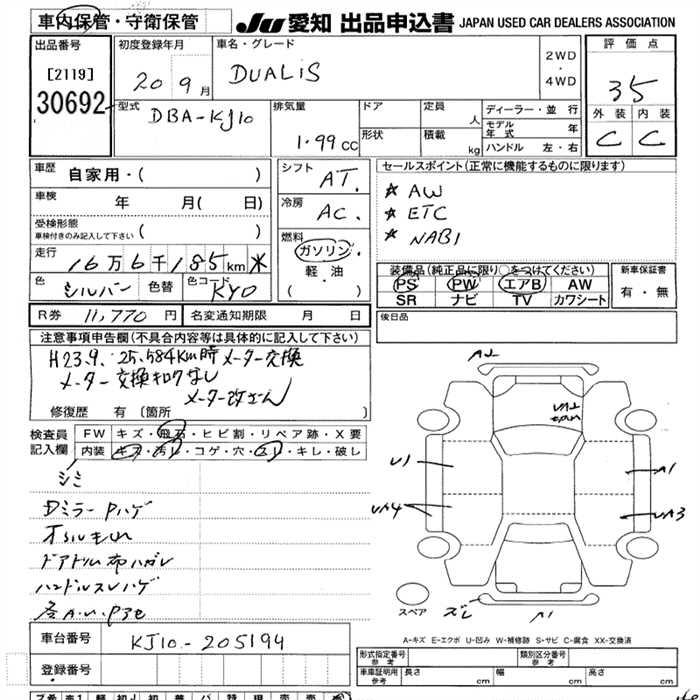 車内保管・守衛保管
JU 愛知 出品申込書 JAPAN USED CAR DEALERS ASSOCIATION
出品番号
[2119]
30692
初度登録年月
20 9月
車名・グレード
DUALIS
2WD
・
4WD
評価点
3.5
外装 内装
C C
型式
DBA-KJ10
排気量
1.99cc
ドア
形状
定員 人
積載 kg
ディーラー・並行
モデル年式 年
ハンドル 左・右
車歴 自家用・( )
車検 年 月( 日)
受検形態
車検付きのみ記入して下さい ( )
走行 16万6千185km
色 シルバー 色替 色コード KYO
シフト AT.
冷房 AC.
燃料
ガソリン
軽・油
( )
セールスポイント(正常に機能するものに限ります)
★ AW
★ ETC
★ NABI
装備品(純正品に限り○をつけてください)
PS PW エアB AW
SR ナビ TV カワシート
新車保証書
有・無
R券 11,770円 名変通知期限 月 日
後日品
注意事項申告欄(不具合内容等は具体的に記入して下さい)
H23.9. 25,584Km時メーター交換
メーター交換キロクなし
メーター改ざん
修復歴 有 〔箇所
検査員
記入欄
FW キズ・飛石・ヒビ割・リペア跡・X要
内装 キズ・汚レ・コゲ・穴・スレ・キレ・破レ
シミ
Dミラー Pハゲ
ドアトリム布ハガレ
ハンドルスレハゲ
A2
U1
A1
UA4
UA3
スペア
ズレ
A1
A-キズ E-エクボ U-凹み W-補修跡 S-サビ C-腐食 XX-交換済
車台番号 KJ10-205194
登録番号
形式指定番号
参考
類別区分番号
参考
車庫証明用
参考
長さ cm 幅 cm 高さ cm